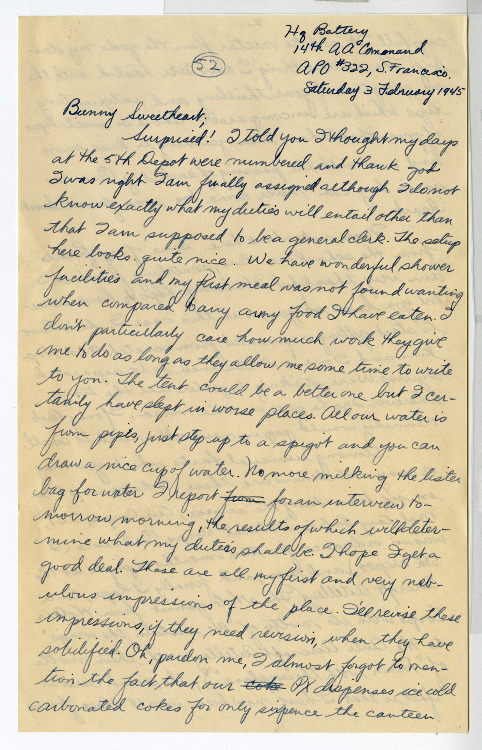 Hq Battery
14th AA Command
APO #322, S. Francisco.
52
Saturday 3 February 1945
Bunny Sweetheart;
Surprised! I told you I thought my days
at the 5th Depot were numbered and thank god
I was right. I am finally assigned although I do not
know exactly what my duties will entail other than
that I am supposed to be a general clerk. The setup
here looks quite nice. We have wonderful shower
facilities and my first meal was not found wanting
when compared to any army food I have eaten. I
don't particularly care how much work they give
me to do as long as they allow me some time to write
to you. The tent could be a better one but I cer-
tainly have slept in worse places. All our water is
from pipes, just step up to a spigot and you can
draw a nice cup of water. No more milking the lister
bag for water. I report from for an interview to-
morrow morning, the results of which will deter-
mine what my duties shall be. I hope I get a
good deal. These are all my first and very neb-
ulous impressions of the place. I'll revise these
impressions, if they need revision, when they have
solidified. Oh, pardon me, I almost forgot to men-
tion the fact that our coke PX dispenses ice cold
carbonated cokes for only sixpence the canteen